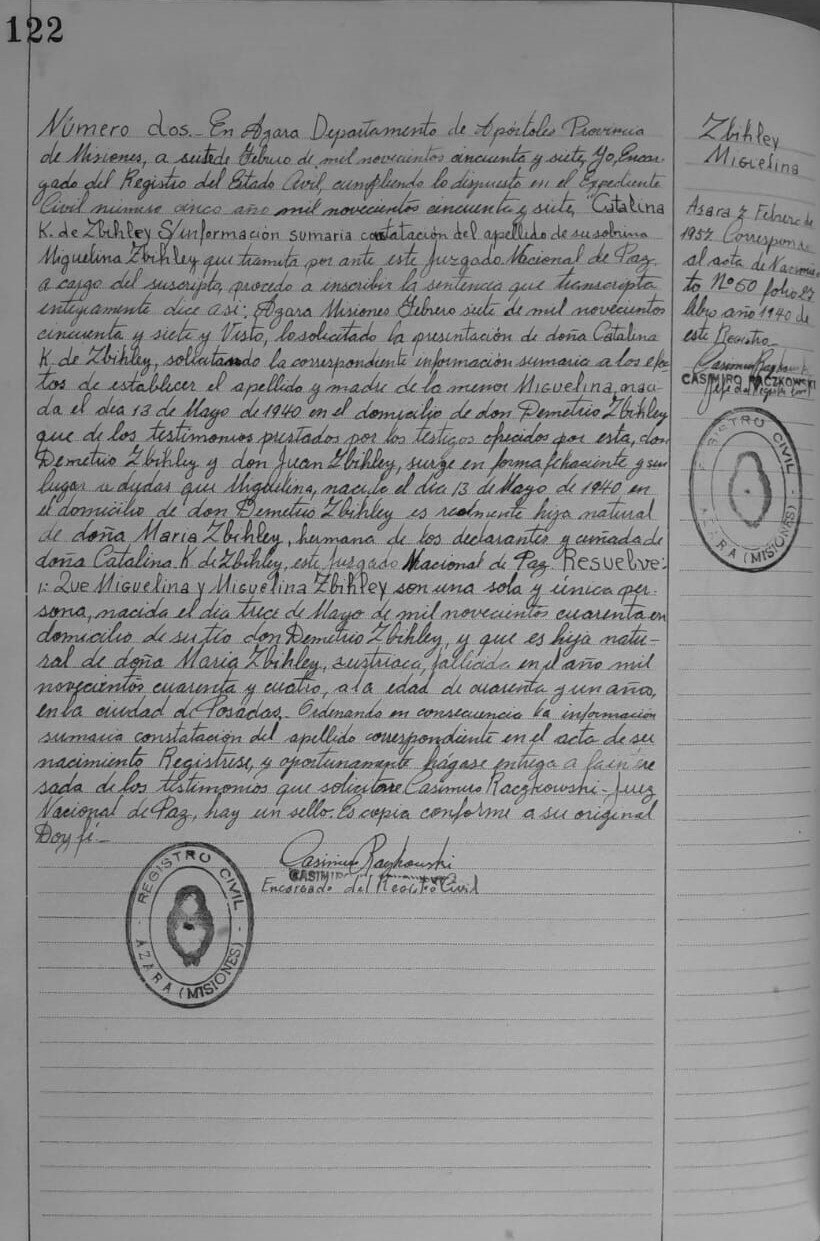 122
Número dos.- En Azara Departamento de Apóstoles Provincia
de Misiones, a siete de Febrero de mil novecientos cincuenta y siete, Yo, Encar-
gado del Registro del Estado Civil, cumpliendo lo dispuesto en el Expediente
Civil número cinco año mil novecientos cincuenta y siete, "Catalina
K. de Zbihley S/información sumaria constatación del apellido de su sobrina
Miguelina Zbihley, que tramita por ante este Juzgado Nacional de Paz
a cargo del suscripto, procedo a inscribir la sentencia que transcripta
integramente dice asi: Azara Misiones Febrero siete de mil novecientos
cincuenta y siete y Visto, lo solicitado la presentación de doña Catalina
K. de Zbihley, solicitando la correspondiente información sumaria a los efec-
tos de establecer el apellido y madre de la menor Miguelina, naci-
da el dia 13 de Mayo de 1940 en el domicilio de don Demetrio Zbihley
que de los testimonios prestados por los testigos ofrecidos por esta, don
Demetrio Zbihley y don Juan Zbihley, surge en forma fehaciente y sin
lugar a dudas que Miguelina, nacido el dia 13 de Mayo de 1940 en
el domicilio de don Demetrio Zbihley es realmente hija natural
de doña Maria Zbihley, hermana de los declarantes y cuñada de
doña Catalina K. de Zbihley, este Juzgado Nacional de Paz. Resuelve:
1: Que Miguelina y Miguelina Zbihley son una sola y única per-
sona, nacida el dia trece de Mayo de mil novecientos cuarenta en
domicilio de su tio don Demetrio Zbihley, y que es hija natu-
ral de doña Maria Zbihley, austriaca, fallecida en el año mil
novecientos cuarenta y cuatro, a la edad de cuarenta y un años,
en la ciudad de Posadas.- Ordenando en consecuencia la información
sumaria constatación del apellido correspondiente en el acta de su
nacimiento Registrese, y oportunamente hágase entrega a la intere
sada de los testimonios que solicitare Casimiro Raczkowski - Juez
Nacional de Paz, hay un sello. Es copia conforme a su original
Doy fé-
Casimiro Raczkowski
CASIMIRO
Encargado del Registro Civil
REGISTRO CIVIL
AZARA (MISIONES)
Zbihley
Miguelina
Azara 7 Febrero de
1957 Corresponde
al acta de Nacimien
to Nº 60 folio 27
libro año 1940 de
este Registro
Casimiro Raczkowski
CASIMIRO RACZKOWSKI
Jefe del Registro Civil
REGISTRO CIVIL
AZARA (MISIONES)